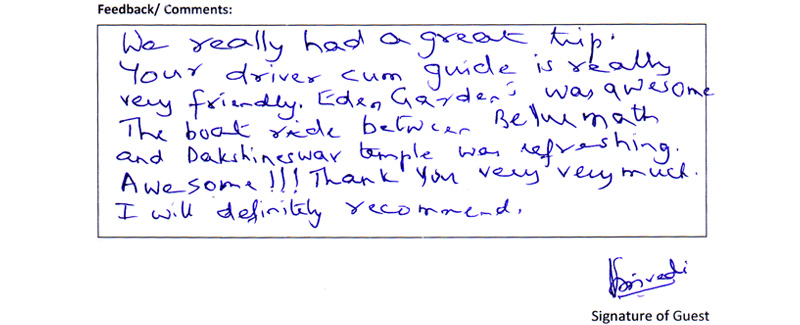 Feedback/ Comments:
We really had a great trip.
Your driver cum guide is really
very friendly. Eden Garden's was awesome
The boat ride between Belur math
and Dakshineswar temple was refreshing.
Awesome!!! Thank you very very much.
I will definitely recommend.
Signature of Guest